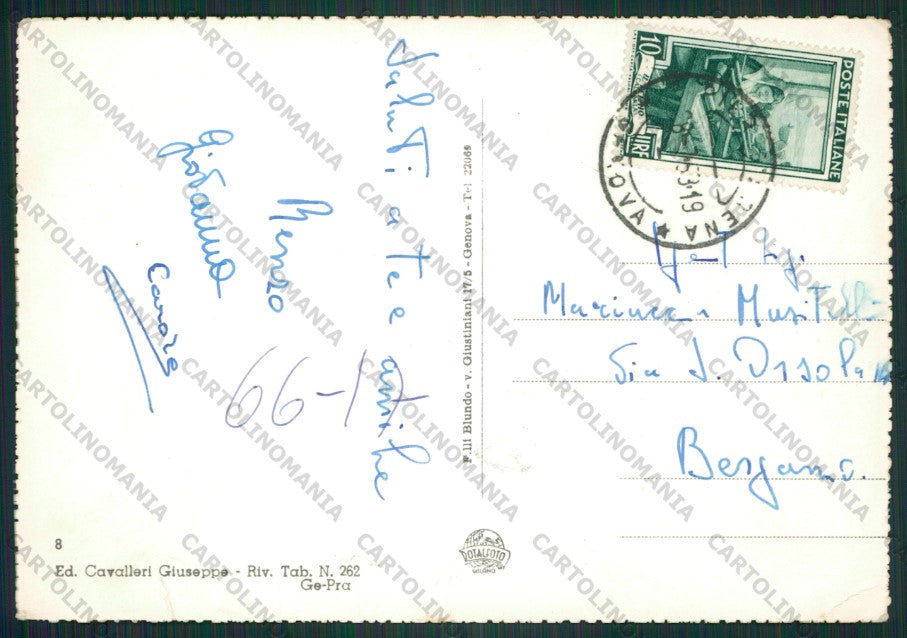 Saluti a te e amiche
Renzo
Giovanni
Canore
66-17
F.lli Biundo - v. Giustiniani 17/5 - Genova - Tel 22069
10
LIRE
POSTE ITALIANE
GENOVA
53-19
Mariuccia Musitelli
Via S. Orsola
Bergamo.
8
Ed. Cavalleri Giuseppe - Riv. Tab. N. 262
Ge-Pra
ROTALFOTO
MILANO
CARTOLINOMANIA